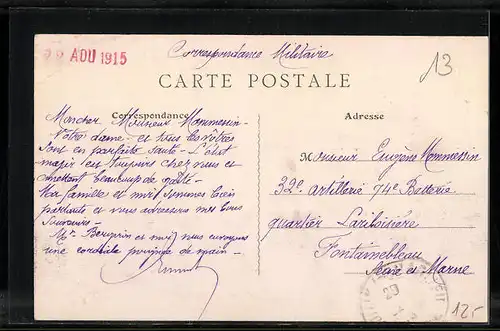 AOU 1915
Correspondance Militaire
13
CARTE POSTALE
Correspondance
Adresse
Mon cher Monsieur Mommessin -
Votre dame et tous les vôtres
sont en parfaite santé - L'état
major est toujours chez vous et
mettent beaucoup de gaîté -
Ma famille et moi sommes bien
portants et vous adressons nos bons
souvenirs -
Mr et moi vous envoyons
une cordiale poignée de main -
Monsieur Eugène Mommessin
32e artillerie 74e Batterie
quartier Lariboisière
Fontainebleau
Seine et Marne
12-